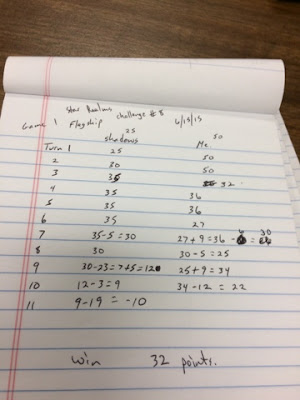 Star Realms challenge #8
Game 1 Flagship 6/15/15
25 50
shadows Me
Turn 1 25 50
2 30 50
3 35 50
4 35 32
5 35 36
6 35 36
7 35-5=30 27+9=36-6=30
8 30 30-5=25
9 30-23=7+5=12 25+9=34
10 12-3=9 34-12=22
11 9-19=-10
win 32 points.